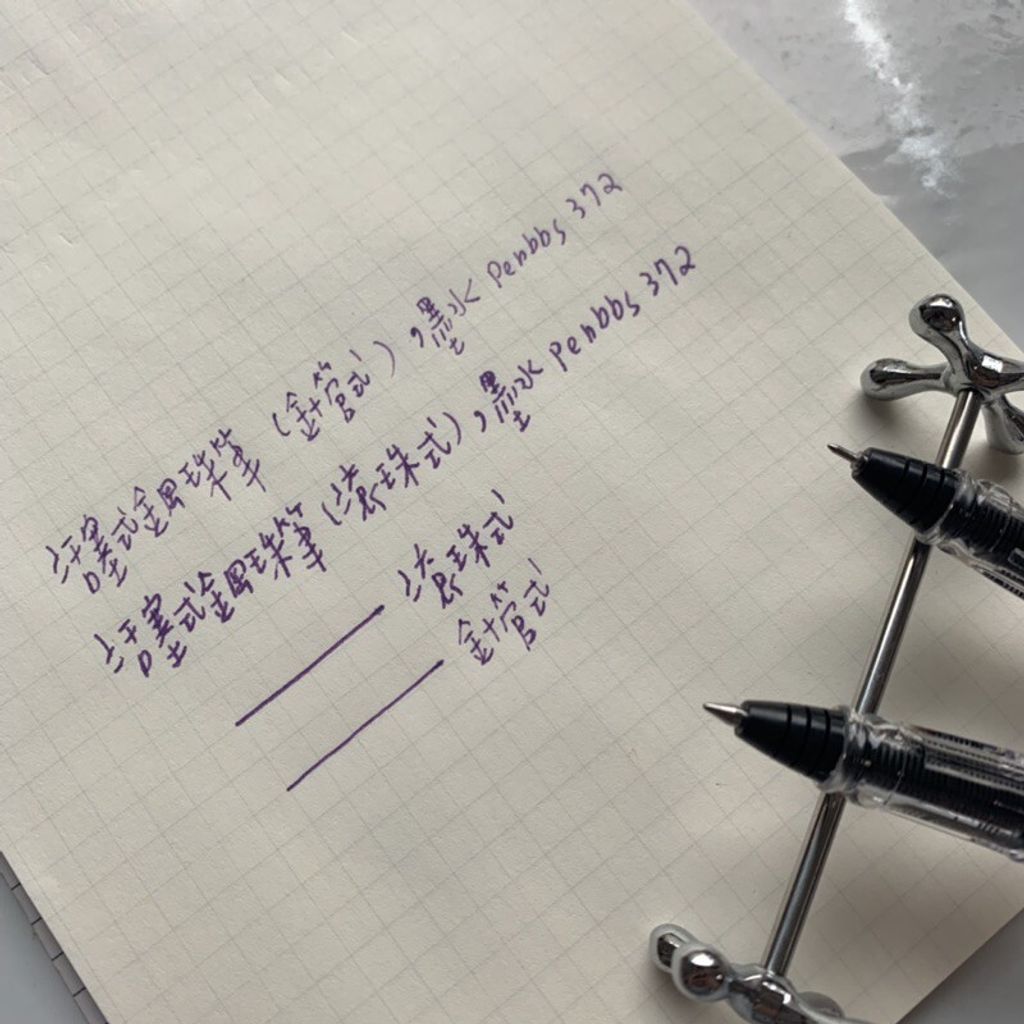 活塞式鋼珠筆(針管式),墨水 Penbbs 372
活塞式鋼珠筆(滾珠式),墨水 Penbbs 372
滾珠式
針管式